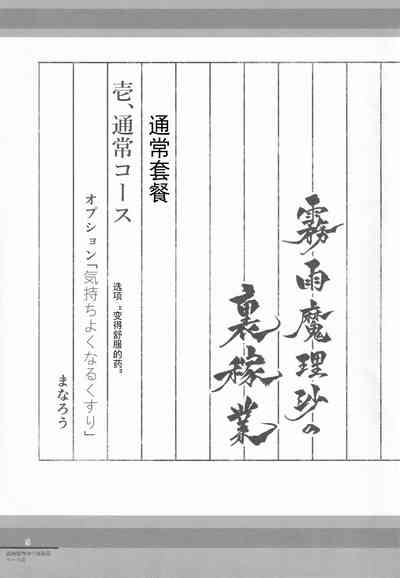 霧雨魔理沙の
裏稼業
通常套餐
壱、通常コース
选项：变得舒服的药。
オプション「気持ちよくなるくすり」
まなろう